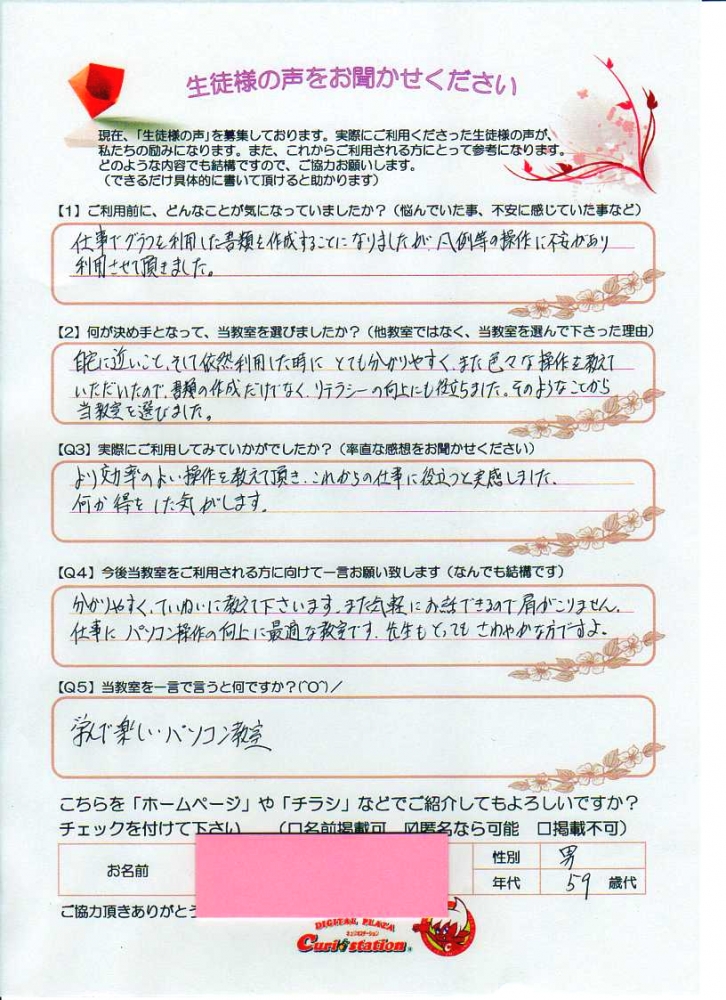 生徒様の声をお聞かせください
現在、「生徒様の声」を募集しております。実際にご利用くださった生徒様の声が、
私たちの励みになります。また、これからご利用される方にとって参考になります。
どのような内容でも結構ですので、ご協力お願いします。
(できるだけ具体的に書いて頂けると助かります)
【1】ご利用前に、どんなことが気になっていましたか?(悩んでいた事、不安に感じていた事など)
仕事でグラフを利用した書類を作成することになりましたが、凡例等の操作に不安があり
利用させて頂きました。
【2】何が決め手となって、当教室を選びましたか?(他教室ではなく、当教室を選んで下さった理由)
自宅に近いこと、そして依然利用した時に とても分かりやすく、また色々な操作を教えて
いただいたので、書類の作成だけでなく、リテラシーの向上にも役立ちました。そのようなことから
当教室を選びました。
【Q3】実際にご利用してみていかがでしたか?(率直な感想をお聞かせください)
より効率のよい操作を教えて頂き、これからの仕事に役立つと実感しました、
何か得をした気がします。
【Q4】今後当教室をご利用される方に向けて一言お願い致します(なんでも結構です)
分かりやすく、ていねいに教えて下さいます。また気軽にお話できるので肩がこりません。
仕事に パソコン操作の向上に最適な教室です。先生もとってもさわやかな方ですよ。
【Q5】当教室を一言で言うと何ですか?(^O^)/
学んで楽しい・パソコン教室
こちらを「ホームページ」や「チラシ」などでご紹介してもよろしいですか?
チェックを付けて下さい (□名前掲載可 ☑匿名なら可能 □掲載不可)
お名前
性別 男
年代 59 歳代
ご協力頂きありがとう
DIGITAL PLAZA
キュリオステーション
Curio station